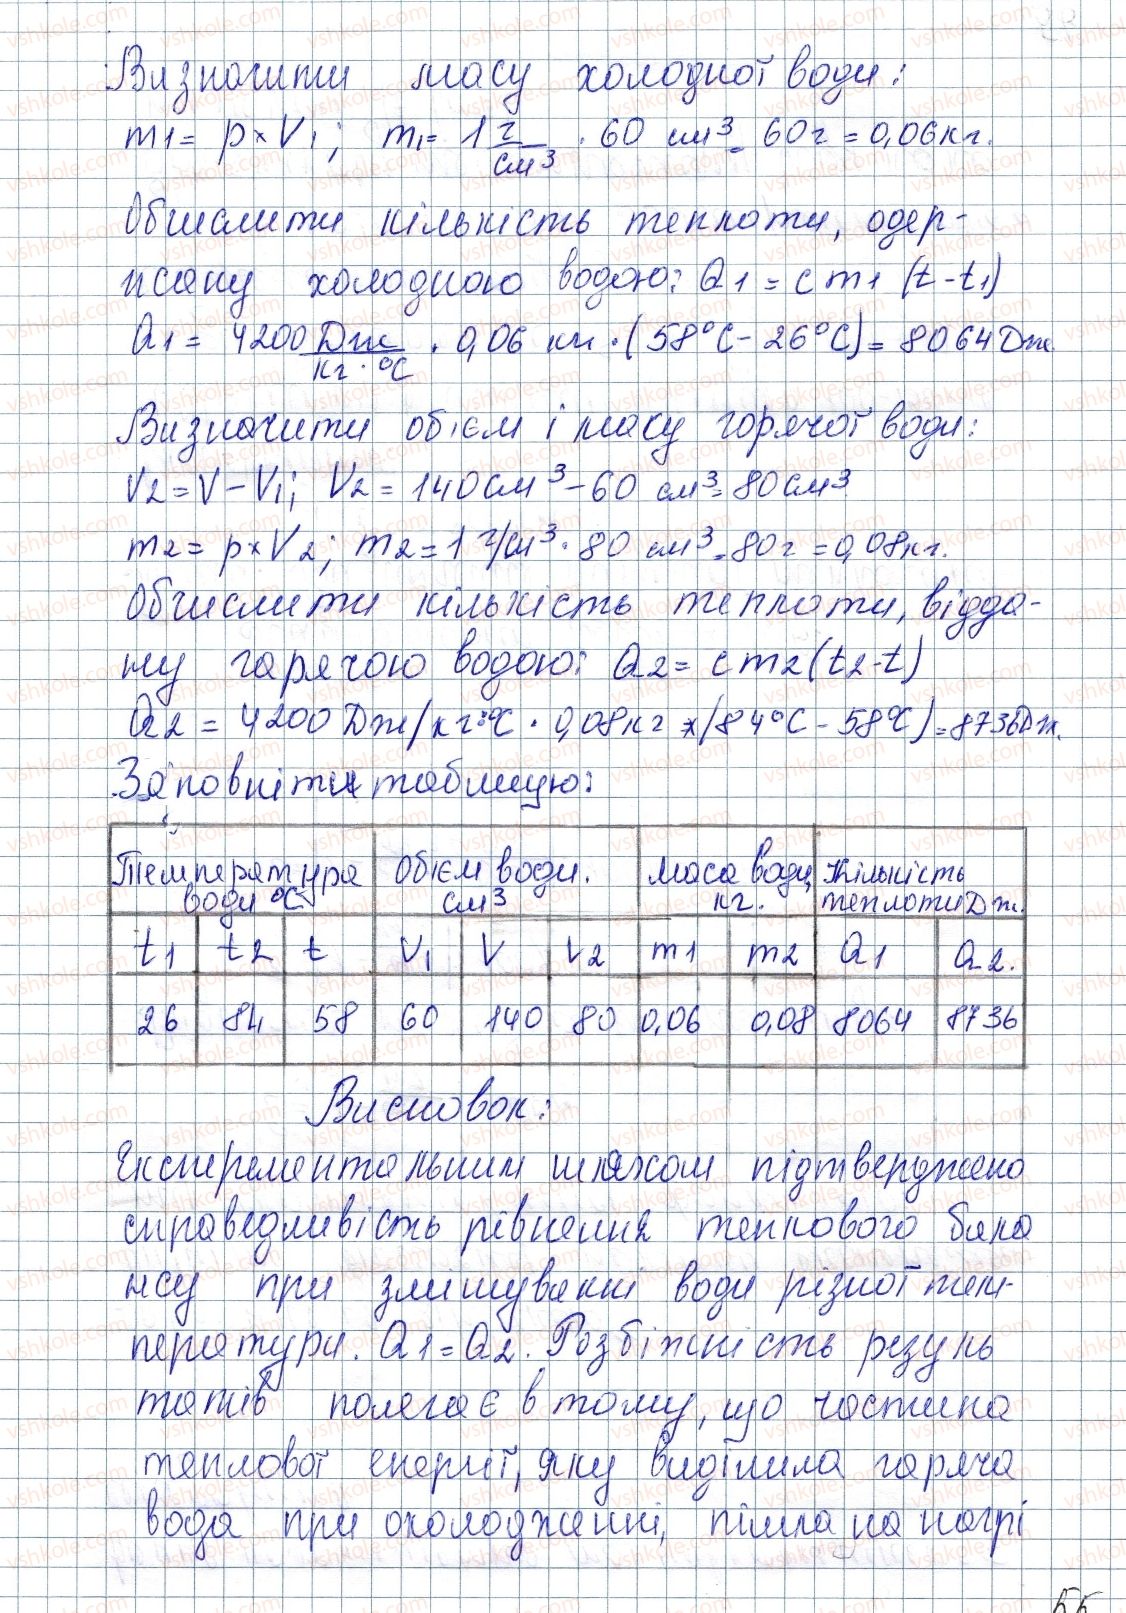 Визначити масу холодної води:
m1 = p × V1; m1 = 1 г/см³ · 60 см³ = 60г = 0,06кг.
Обчислити кількість теплоти, одер-
жану холодною водою: Q1 = c m1 (t - t1)
Q1 = 4200 Дж/кг·°С · 0,06 кг · (58°С - 26°С) = 8064 Дж.
Визначити обієм і масу горячої води:
V2 = V - V1; V2 = 140см³ - 60 см³ = 80см³
m2 = p × V2; m2 = 1 г/см³ · 80 см³ = 80г = 0,08кг.
Обчислити кількість теплоти, відда-
ну гарячою водою: Q2 = c m2 (t2 - t)
Q2 = 4200 Дж/кг·°С · 0,08кг × (84°С - 58°С) = 8736Дж.
Заповніти таблицю:
Температура води °С Обієм води. см³ Маса води кг. Кількість теплоти Дж.
t1 t2 t V1 V V2 m1 m2 Q1 Q2.
26 84 58 60 140 80 0,06 0,08 8064 8736
Висновок:
Експерементальним шляхом підтверджено
справедливість рівнення теплового бала
нсу при змішуванні води різної тем-
ператури. Q1 = Q2. Розбіжність резуль
татів полягає в тому, що частина
теплової енергії, яку виділила гаряча
вода при охолодженні, пішла на нагрі
vshkole.com